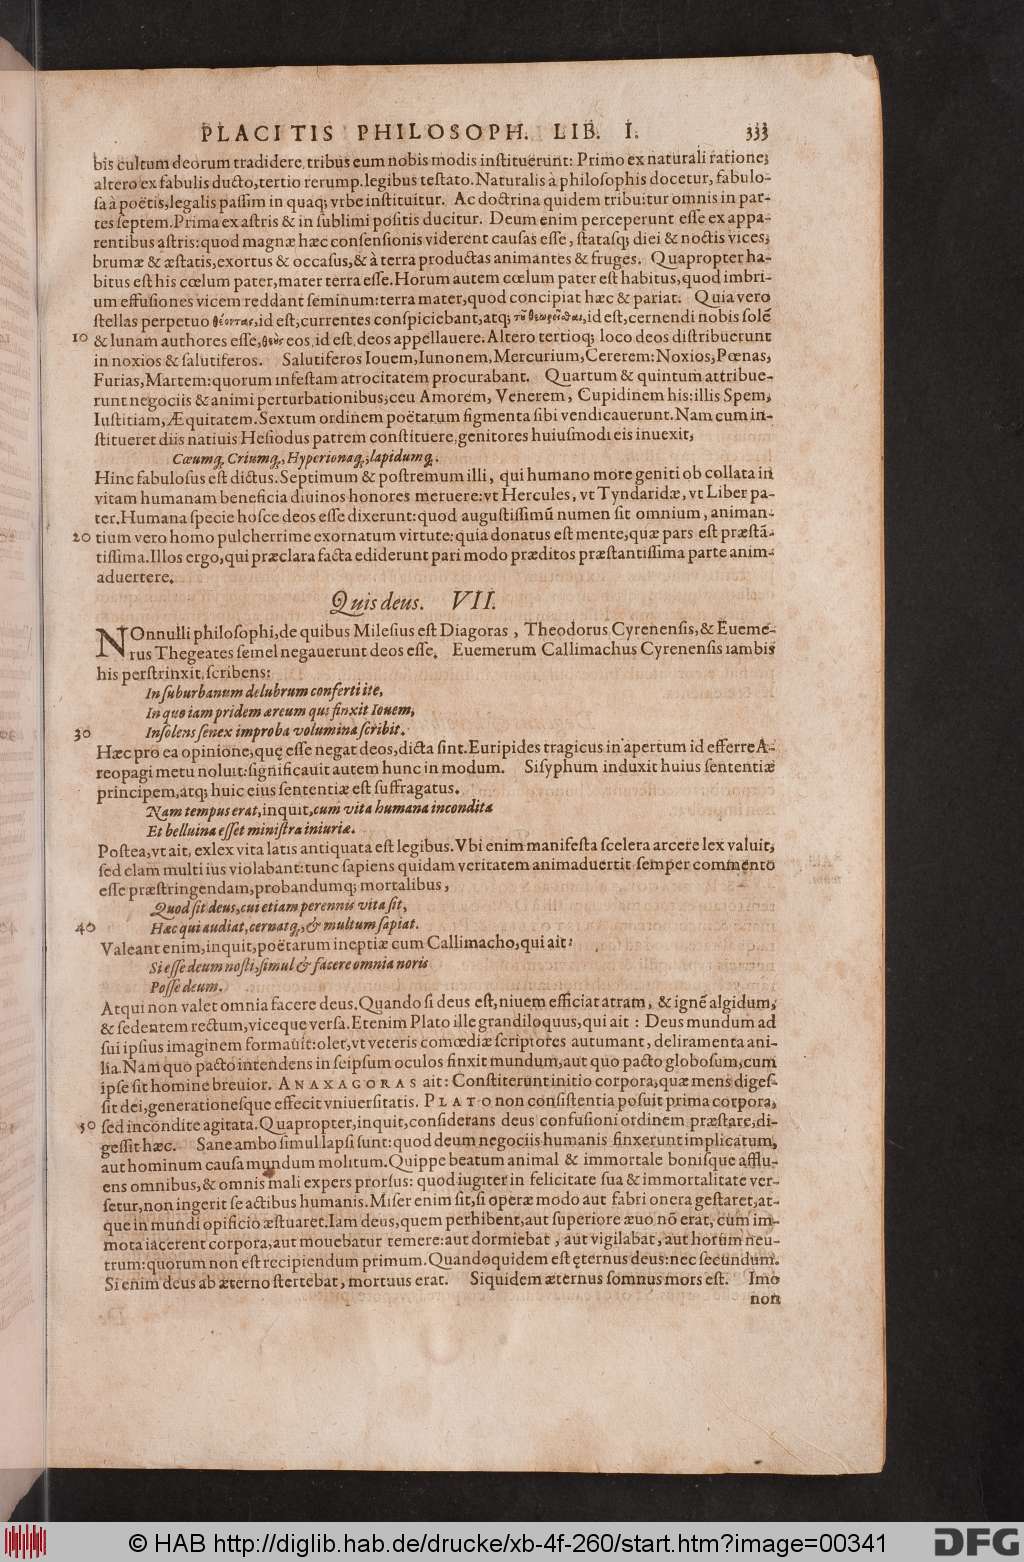 PLACITIS PHILOSOPH. LIB. I. 333
bis cultum deorum tradidere, tribus eum nobis modis inſtituerunt: Primo ex naturali ratione;
altero ex fabulis ducto, tertio rerump. legibus teſtato. Naturalis à philoſophis docetur, fabulo-
ſa à poëtis, legalis paſſim in quaq; vrbe inſtituitur. Ac doctrina quidem tribuitur omnis in par-
tes ſeptem. Prima ex aſtris & in ſublimi poſitis ducitur. Deum enim perceperunt eſſe ex appa-
rentibus aſtris: quod magnæ hæc conſenſionis viderent cauſas eſſe, ſtataſq; diei & noctis vices;
brumæ & æſtatis, exortus & occaſus, & à terra productas animantes & fruges. Quapropter ha-
bitus eſt his cœlum pater, mater terra eſſe. Horum autem cœlum pater eſt habitus, quod imbri-
um effuſiones vicem reddant ſeminum: terra mater, quod concipiat hæc & pariat. Quia vero
ſtellas perpetuo θέοντας, id eſt, currentes conſpiciebant, atq; τῦ θεωρεῖσθαι, id eſt, cernendi nobis ſolē
10 & lunam authores eſſe, θεοὺς eos, id eſt, deos appellauere. Altero tertioq; loco deos diſtribuerunt
in noxios & ſalutiferos. Salutiferos Iouem, Iunonem, Mercurium, Cererem: Noxios, Pœnas,
Furias, Martem: quorum infeſtam atrocitatem procurabant. Quartum & quintum attribue-
runt negociis & animi perturbationibus; ceu Amorem, Venerem, Cupidinem his: illis Spem,
Iuſtitiam, Æquitatem. Sextum ordinem poëtarum figmenta ſibi vendicauerunt. Nam cum in-
ſtitueret diis natiuis Heſiodus patrem conſtituere, genitores huiuſmodi eis inuexit,
Cœumq, Criumq, Hyperionaq; Iapidumq.
Hinc fabuloſus eſt dictus. Septimum & poſtremum illi, qui humano more geniti ob collata in
vitam humanam beneficia diuinos honores meruere: vt Hercules, vt Tyndaridæ, vt Liber pa-
ter. Humana ſpecie hoſce deos eſſe dixerunt: quod auguſtiſſimū numen ſit omnium, animan-
20 tium vero homo pulcherrime exornatum virtute: quia donatus eſt mente, quæ pars eſt præſtā-
tiſſima. Illos ergo, qui præclara facta ediderunt pari modo præditos præſtantiſſima parte anim-
aduertere.
Quis deus. VII.
NOnnulli philoſophi, de quibus Mileſius eſt Diagoras, Theodorus Cyrenenſis, & Eueme-
rus Thegeates ſemel negauerunt deos eſſe. Euemerum Callimachus Cyrenenſis iambis
his perſtrinxit, ſcribens:
In ſuburbanum delubrum conferti ite,
In quo iam pridem æreum qui finxit Iouem,
30 Inſolens ſenex improba volumina ſcribit.
Hæc pro ea opinione, quę eſſe negat deos, dicta ſint. Euripides tragicus in apertum id efferre A-
reopagi metu noluit: ſignificauit autem hunc in modum. Siſyphum induxit huius ſententiæ
principem, atq; huic eius ſententiæ eſt ſuffragatus.
Nam tempus erat, inquit, cum vita humana incondita
Et belluina eſſet miniſtra iniuriæ.
Poſtea, vt ait, exlex vita latis antiquata eſt legibus. Vbi enim manifeſta ſcelera arcere lex valuit,
ſed clam multi ius violabant: tunc ſapiens quidam veritatem animaduertit ſemper commento
eſſe præſtringendam, probandumq; mortalibus,
Quod ſit deus, cui etiam perennis vita ſit,
40 Hæc qui audiat, cernatq, & multum ſapiat.
Valeant enim, inquit, poëtarum ineptiæ cum Callimacho, qui ait:
Si eſſe deum noſti, ſimul & facere omnia noris
Poſſe deum.
Atqui non valet omnia facere deus. Quando ſi deus eſt, niuem efficiat atram, & ignē algidum,
& ſedentem rectum, viceque verſa. Etenim Plato ille grandiloquus, qui ait: Deus mundum ad
ſui ipſius imaginem formauit: olet, vt veteris comœdiæ ſcriptores autumant, deliramenta ani-
lia. Nam quo pacto intendens in ſeipſum oculos finxit mundum, aut quo pacto globoſum, cum
ipſe ſit homine breuior. ANAXAGORAS ait: Conſtiterunt initio corpora, quæ mens digeſ-
ſit dei, generationeſque effecit vniuerſitatis. PLATO non conſiſtentia poſuit prima corpora,
50 ſed incondite agitata. Quapropter, inquit, conſiderans deus confuſioni ordinem præſtare, di-
geſſit hæc. Sane ambo ſimul lapſi ſunt: quod deum negociis humanis finxerunt implicatum,
aut hominum cauſa mundum molitum. Quippe beatum animal & immortale boniſque afflu-
ens omnibus, & omnis mali expers prorſus: quod iugiter in felicitate ſua & immortalitate ver-
ſetur, non ingerit ſe actibus humanis. Miſer enim ſit, ſi operæ modo aut fabri onera geſtaret, at-
que in mundi opificio æſtuaret. Iam deus, quem perhibent, aut ſuperiore æuo nō erat, cum im-
mota iacerent corpora, aut mouebatur temere: aut dormiebat, aut vigilabat, aut horum neu-
trum: quorum non eſt recipiendum primum. Quandoquidem eſt ęternus deus: nec ſecundum.
Si enim deus ab æterno ſtertebat, mortuus erat. Siquidem æternus ſomnus mors eſt. Imo
non
© HAB http://diglib.hab.de/drucke/xb-4f-260/start.htm?image=00341 DFG